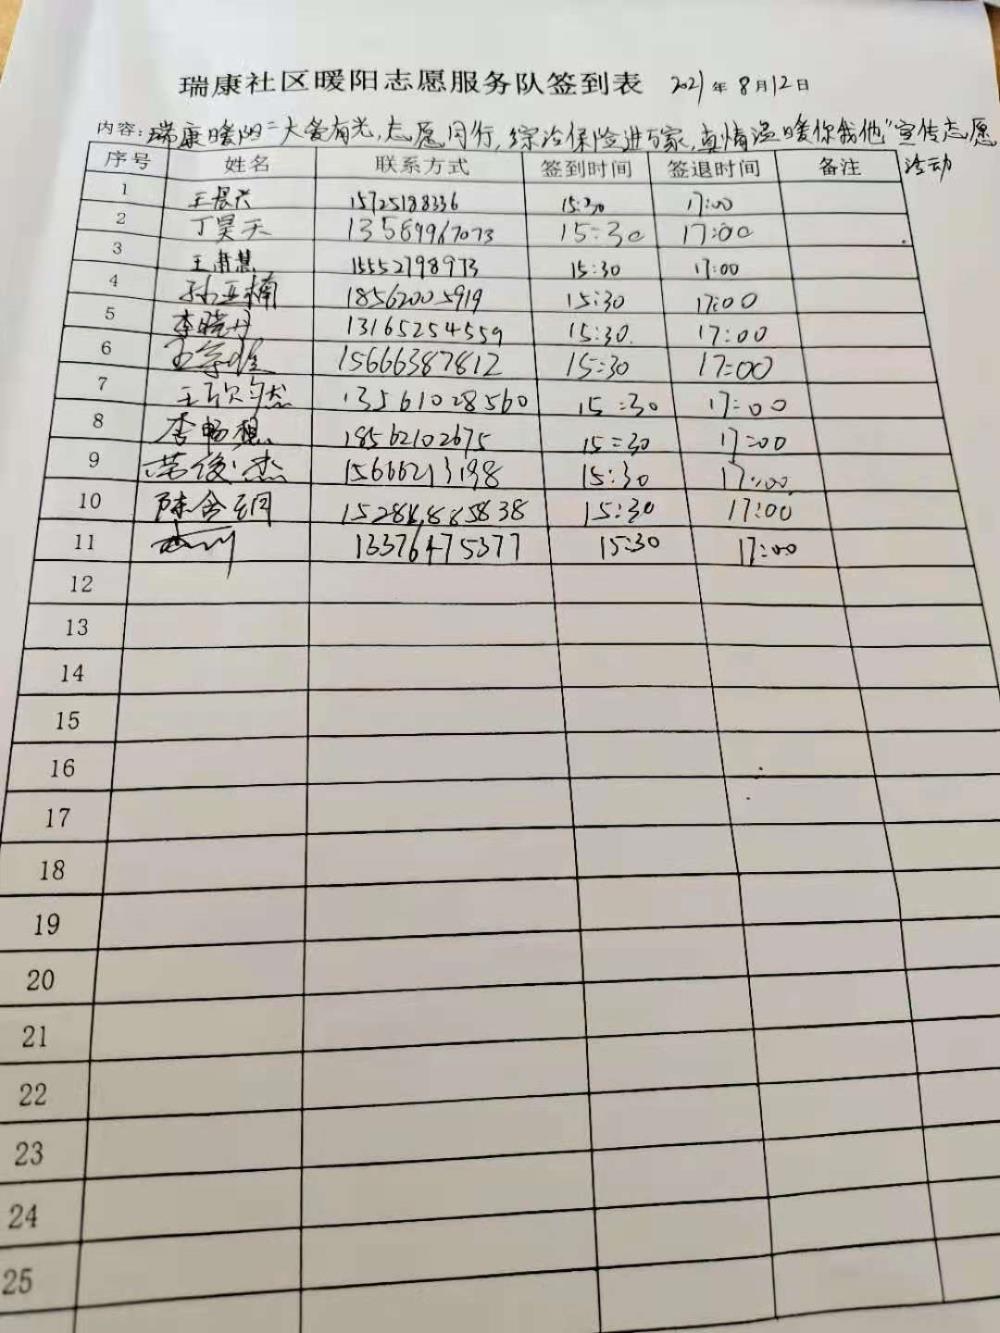 瑞康社区暖阳志愿服务队签到表 2021年8月12日
内容：瑞康暖阳"大爱有光，志愿同行，综治保险进万家，真情温暖你我他"宣传志愿
活动
序号 姓名 联系方式 签到时间 签退时间 备注
1 15725188336 15:30 17:00
2 丁昊天 13589967073 15:30 17:00
3 王甫慧 15552798973 15:30 17:00
4 孙亚楠 18562005919 15:30 17:00
5 李晓丹 13165254559 15:30 17:00
6 15666387812 15:30 17:00
7 13561028560 15:30 17:00
8 李畅想 18562102675 15:30 17:00
9 15666213198 15:30 17:00
10 15:30 17:00
11 13376475377 15:30 17:00
12
13
14
15
16
17
18
19
20
21
22
23
24
25